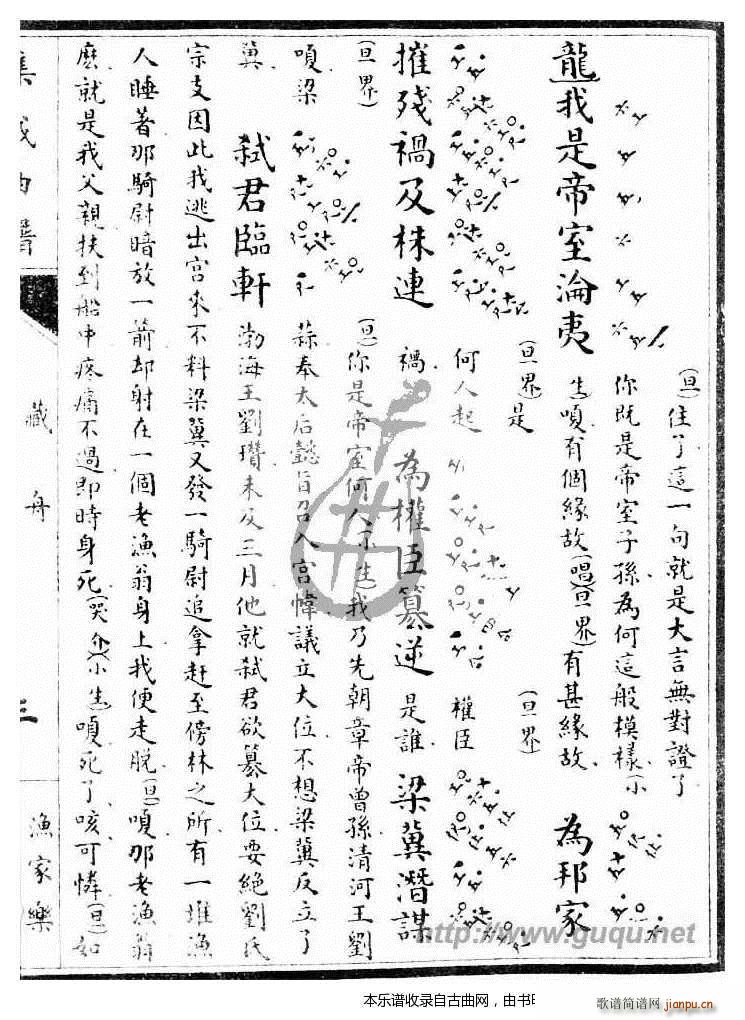 龍我是帝室淪夷(旦)住了這一句就是大言無對證了
你既是帝室子孫為何這般模樣(小
生)嗄有個緣故(唱)(旦界)有甚緣故為邦家
(旦界)是(旦界)
摧殘禍及株連何人起禍為權臣篡逆權臣是誰梁冀潛謀
(旦界)(旦)你是帝室何人(小生)我乃先朝章帝曾孫清河王劉
嗄梁蒜奉太后懿旨召入宮幃議立大位不想梁冀反立了
冀弒君臨軒渤海王劉瓚未及三月他就弒君欲篡大位要絕劉氏
宗支因此我逃出宮來不料梁冀又發一騎尉追拿赶至傍林之所有一堆漁
人睡著那騎尉暗放一箭却射在一個老漁翁身上我便走脫(旦)嗄那老漁翁
麽就是我父親扶到船中疼痛不過即時身死(哭介)(小生)嗄死了咳可憐(旦)如
集成曲譜
藏舟
三
漁家樂
http://www.guqu.net
本乐谱收录自古曲网，由书
歌谱简谱网
jianpu.cn